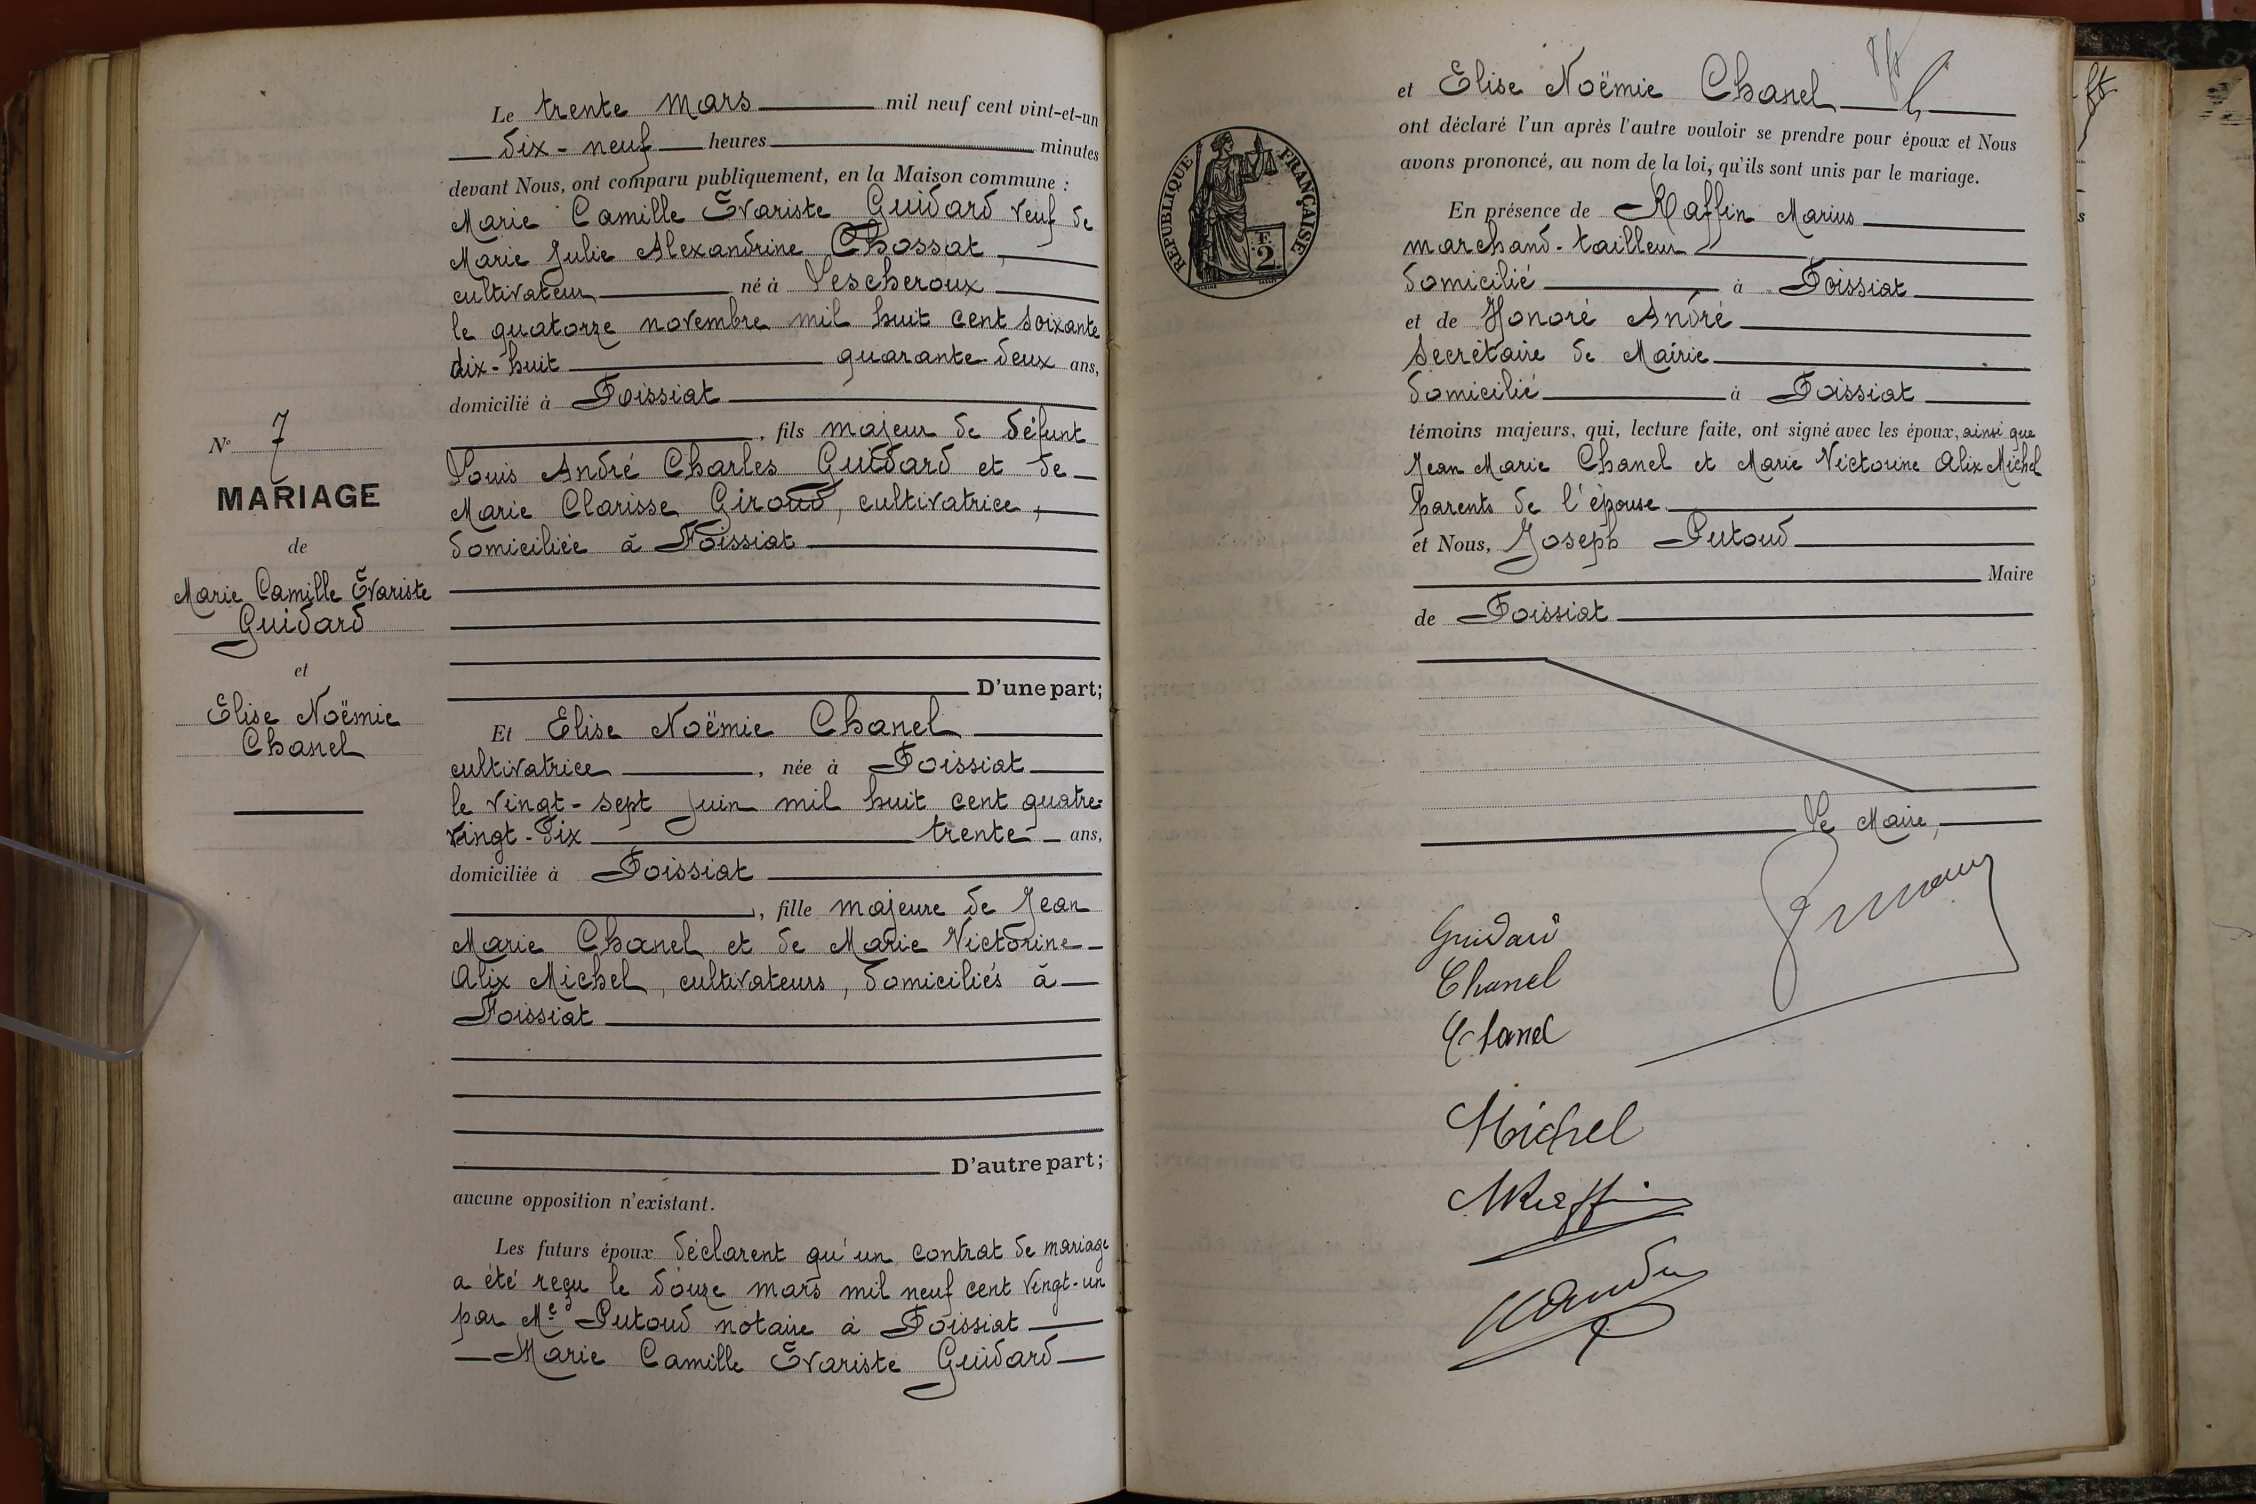 Le trente mars mil neuf cent vint-et-un
dix-neuf heures minutes
devant Nous, ont comparu publiquement, en la Maison commune :
Marie Camille Évariste Guidard veuf de
Marie Julie Alexandrine Chossat,
cultivateur né à Lescheroux
le quatorze novembre mil huit cent soixante
dix-huit quarante-deux ans,
domicilié à Foissiat
, fils majeur de défunt
Louis André Charles Guidard et de
Marie Clarisse Giroud, cultivatrice,
domiciliée à Foissiat
N° 7
MARIAGE
de
Marie Camille Évariste
Guidard
et
Elise Noëmie
Chanel
D'une part;
Et Elise Noëmie Chanel
cultivatrice, née à Foissiat
le vingt-sept juin mil huit cent quatre-
vingt-dix trente ans,
domiciliée à Foissiat
, fille majeure de Jean
Marie Chanel et de Marie Victorine
Alix Michel, cultivateurs, domiciliés à
Foissiat
D'autre part;
aucune opposition n'existant.
Les futurs époux déclarent qu'un contrat de mariage
a été reçu le douze mars mil neuf cent vingt-un
par Me Putoud notaire à Foissiat
Marie Camille Évariste Guidard
et Elise Noëmie Chanel
ont déclaré l'un après l'autre vouloir se prendre pour époux et Nous
avons prononcé, au nom de la loi, qu'ils sont unis par le mariage.
RÉPUBLIQUE FRANÇAISE
F.
2
En présence de Raffin Marius
marchand-tailleur
domicilié à Foissiat
et de Honoré André
Secrétaire de Mairie
domicilié à Foissiat
témoins majeurs, qui, lecture faite, ont signé avec les époux, ainsi que
Jean Marie Chanel et Marie Victorine Alix Michel
parents de l'épouse
et Nous, Joseph Putoud
Maire
de Foissiat
Le Maire,
Guidard
Chanel
Chanel
Michel
MRaffin